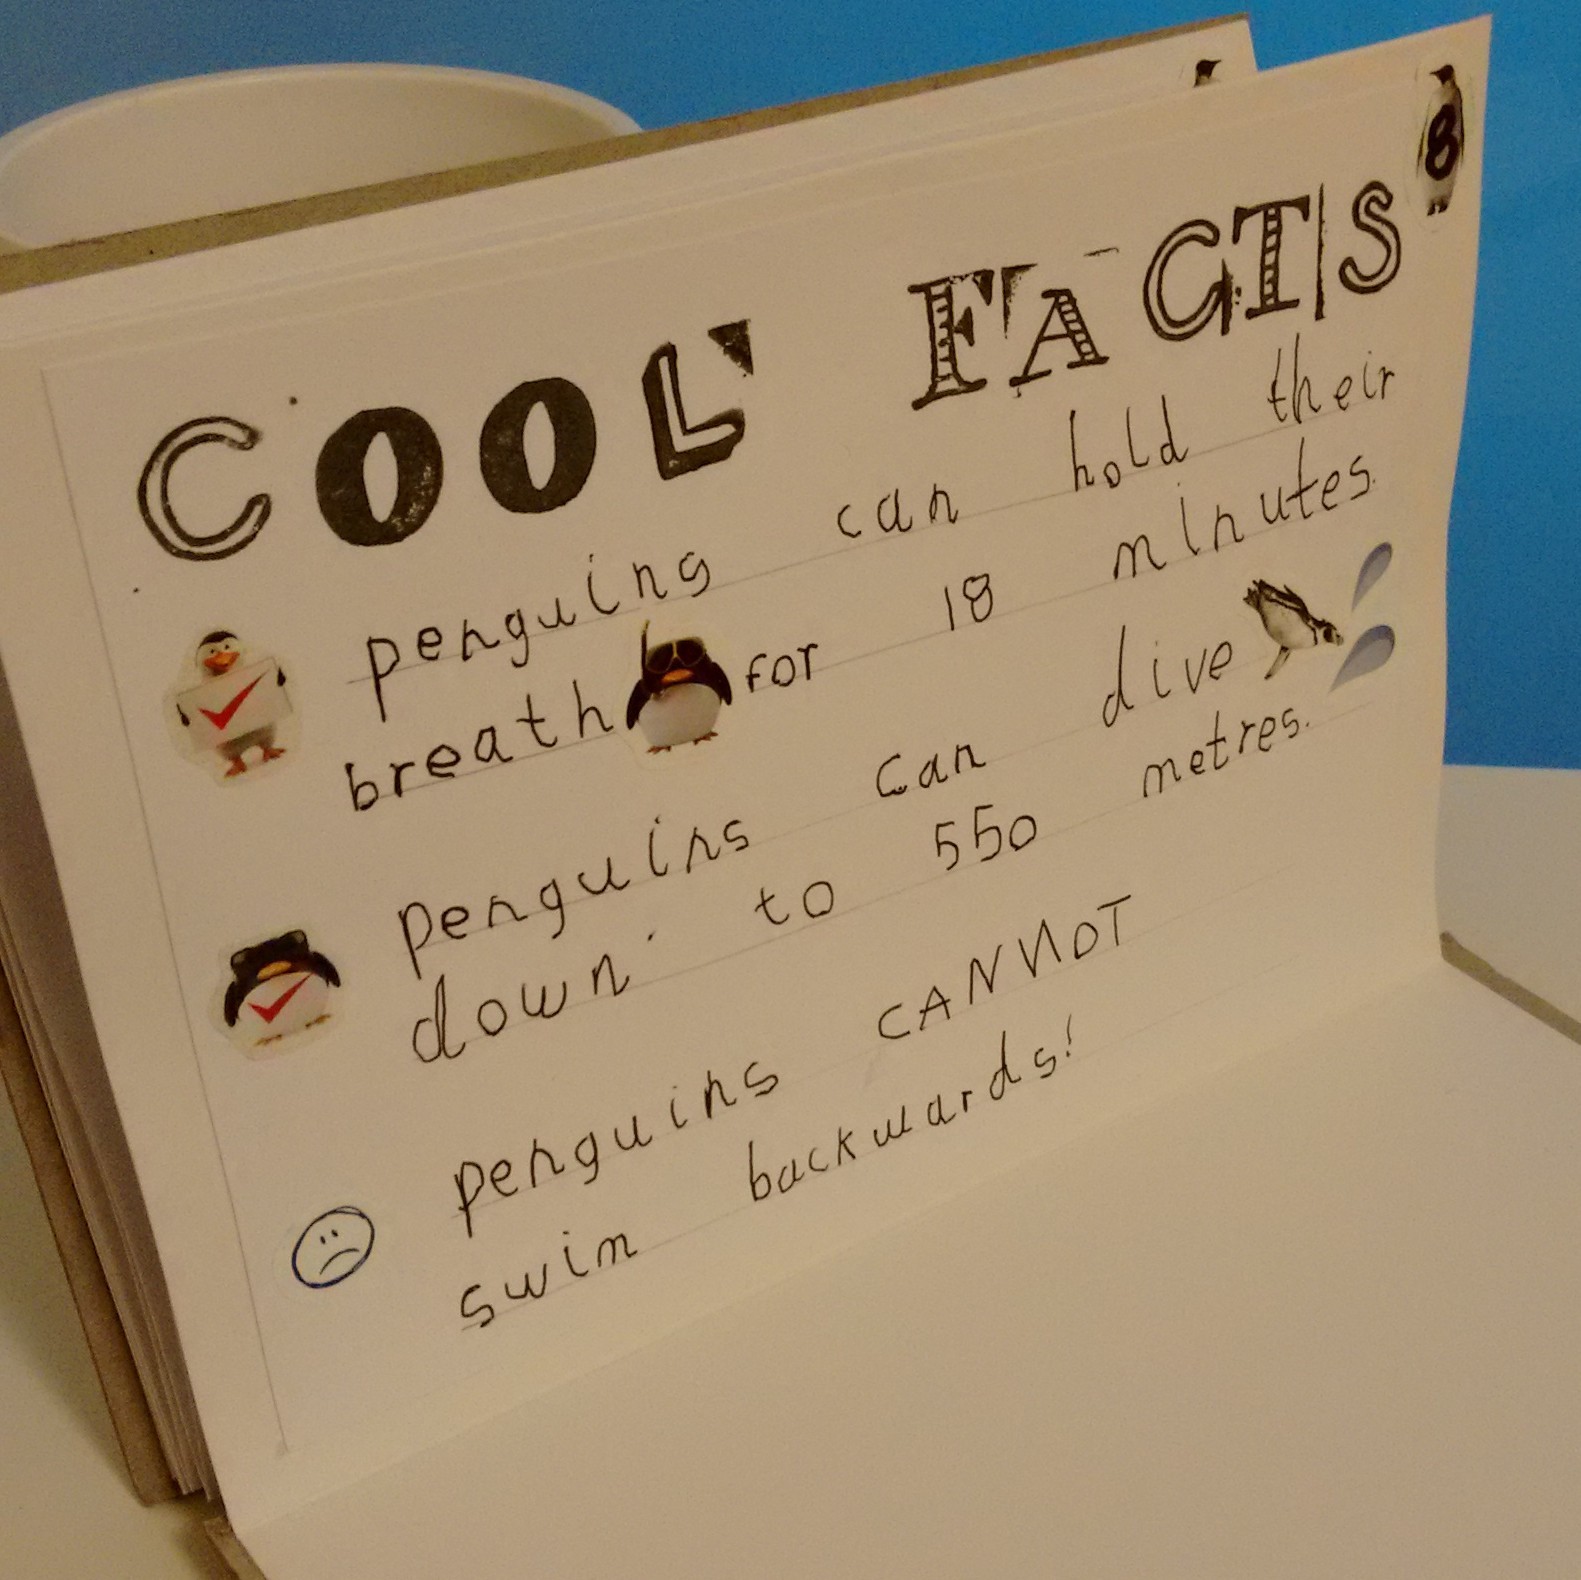 8
COOL FACTS
penguins can hold their
breath for 18 minutes.
penguins can dive
down to 550 metres.
penguins CANNOT
swim backwards!